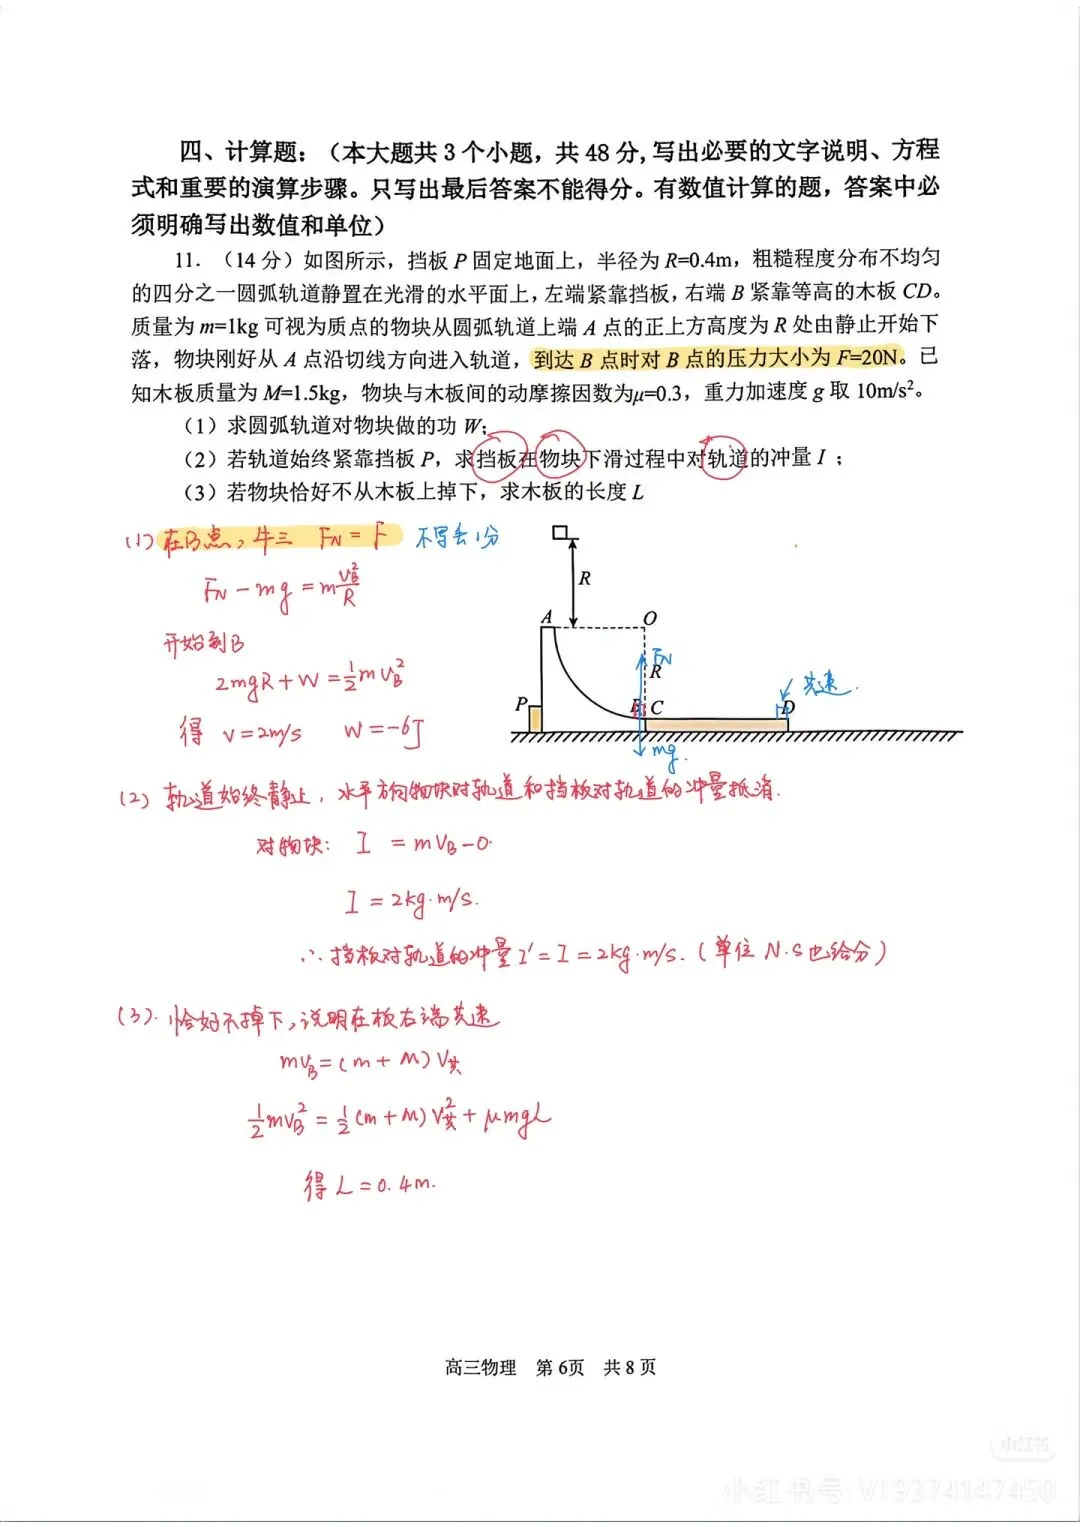 四、计算题：（本大题共 3 个小题，共 48 分，写出必要的文字说明、方程
式和重要的演算步骤。只写出最后答案不能得分。有数值计算的题，答案中必
须明确写出数值和单位）
11．（14 分）如图所示，挡板 P 固定地面上，半径为 R=0.4m，粗糙程度分布不均匀
的四分之一圆弧轨道静置在光滑的水平面上，左端紧靠挡板，右端 B 紧靠等高的木板 CD。
质量为 m=1kg 可视为质点的物块从圆弧轨道上端 A 点的正上方高度为 R 处由静止开始下
落，物块刚好从 A 点沿切线方向进入轨道，到达 B 点时对 B 点的压力大小为 F=20N。已
知木板质量为 M=1.5kg，物块与木板间的动摩擦因数为μ=0.3，重力加速度 g 取 10m/s²。
（1）求圆弧轨道对物块做的功 W；
（2）若轨道始终紧靠挡板 P，求挡板在物块下滑过程中对轨道的冲量 I；
（3）若物块恰好不从木板上掉下，求木板的长度 L
(1) 在B点，牛三 FN = F 不写丢1分
FN - mg = m vB²/R
开始到B
2mgR + W = 1/2 m vB²
得 v = 2m/s W = -6J
R
A
O
FN
R
P
B
C
D
共速
mg
(2) 轨道始终静止，水平方向物块对轨道和挡板对轨道的冲量抵消.
对物块： I = mvB - 0.
I = 2kg·m/s.
∴ 挡板对轨道的冲量 I' = I = 2kg·m/s.（单位 N·s也给分）
(3). 恰好不掉下，说明在板右端共速
mvB = (m + M) v共
1/2 mvB² = 1/2 (m + M) v共² + μmgL
得 L = 0.4m.
高三物理 第 6页 共 8 页
小红书
小红书号: V19374147450